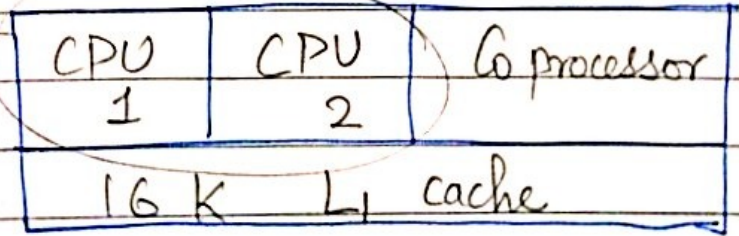 CPU CPU Co processor
1 2
16 K L1 cache